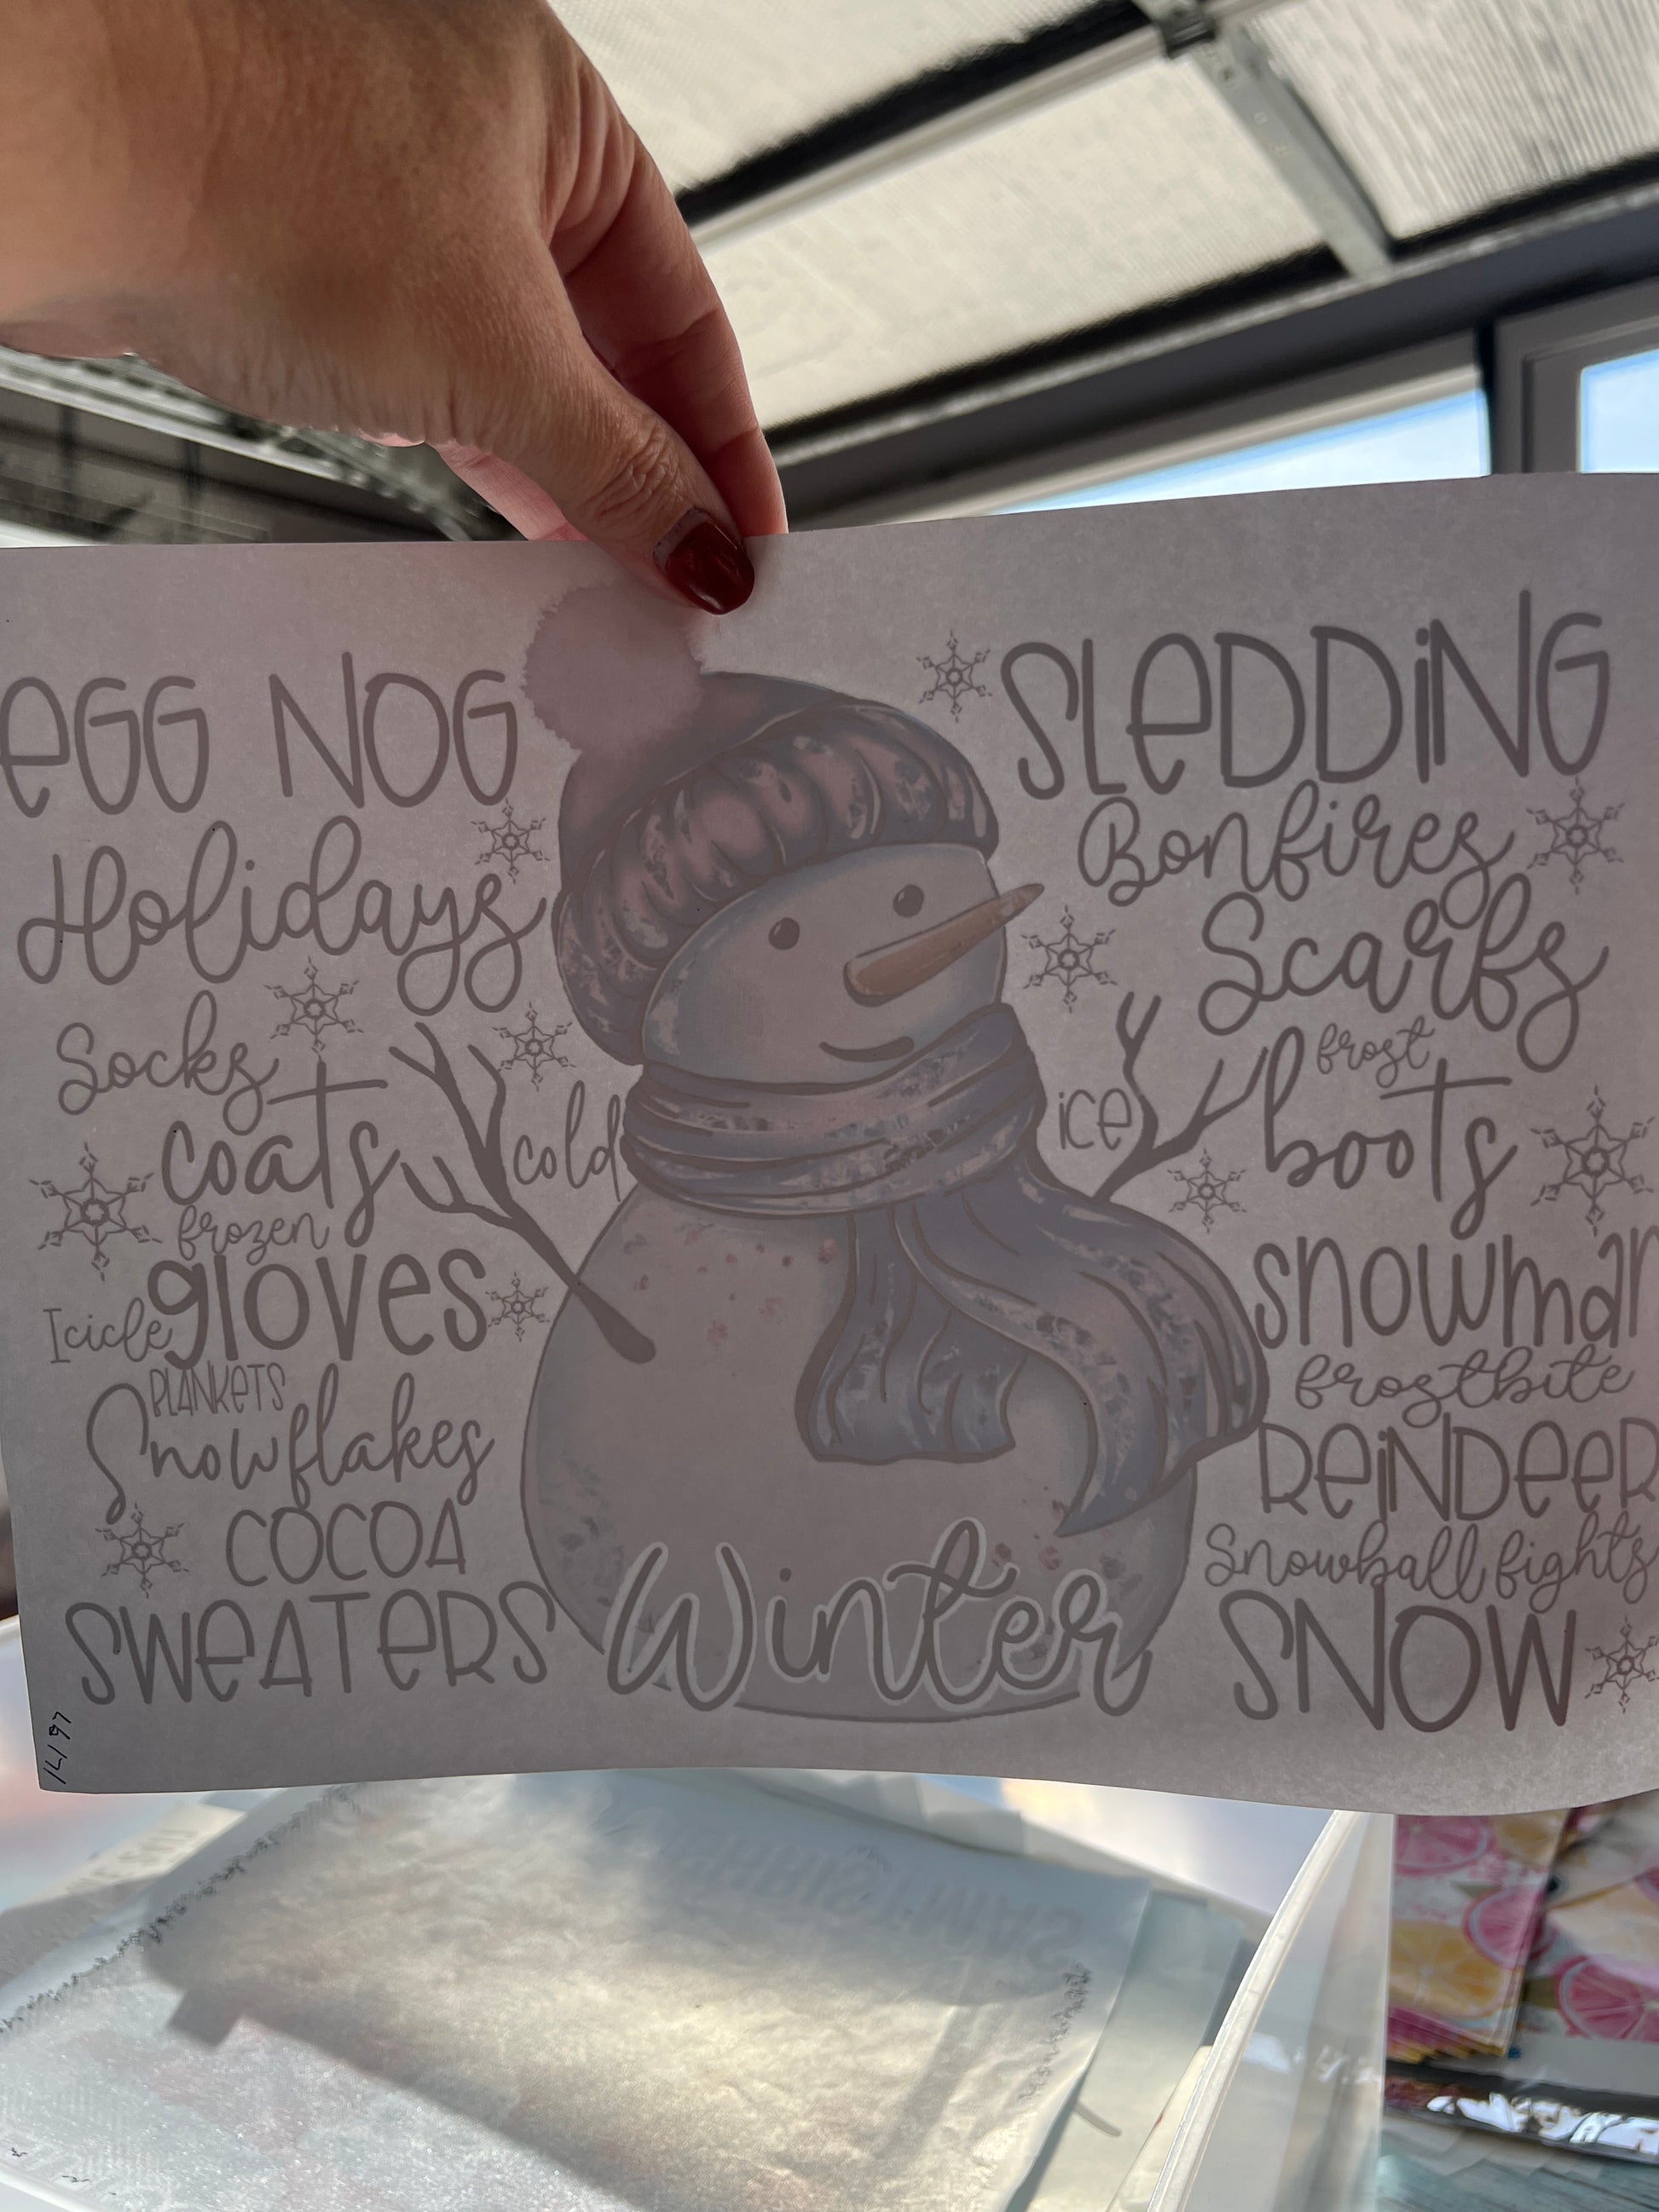 eGG NOG
Holidays
Socks
coats
cold
frozen
gloves
Icicle
BLANKeTS
Snowflakes
COCOA
SWeATeRS
Winter
SLeDDiNG
Bonfires
Scarfs
frost
ice
boots
snowman
frostbite
ReiNDeeR
Snowball fights
SNOW